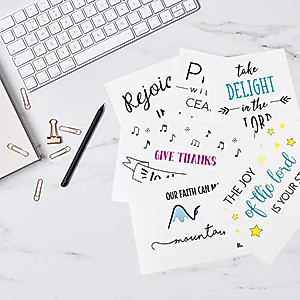 Rejoic
P
WI
CEA
take
DELIGHT
in the
LORD
GIVE THANKS
OUR FAITH CAN M
mountai
THE JOY
of the lord
IS YOUR ST